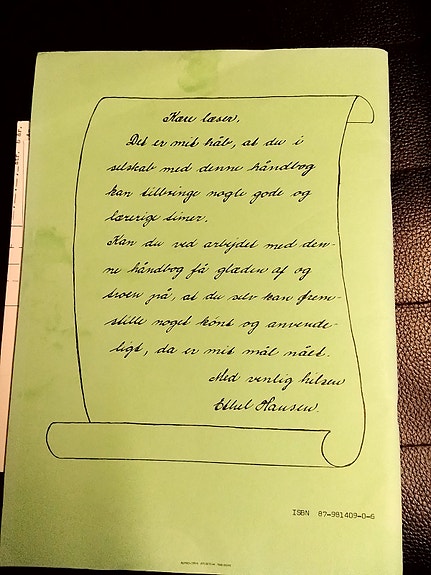 Kære læser,
Det er mit håb, at du i
selskab med denne håndbog
kan tilbringe nogle gode og
lærerige timer.
Kan du ved arbejdet med den-
ne håndbog få glæden af og
troen på, at du selv kan frem-
stille noget kønt og anvende-
ligt, da er mit mål nået.
Med venlig hilsen
Ethel Hansen.
ISBN 87-981409-0-6